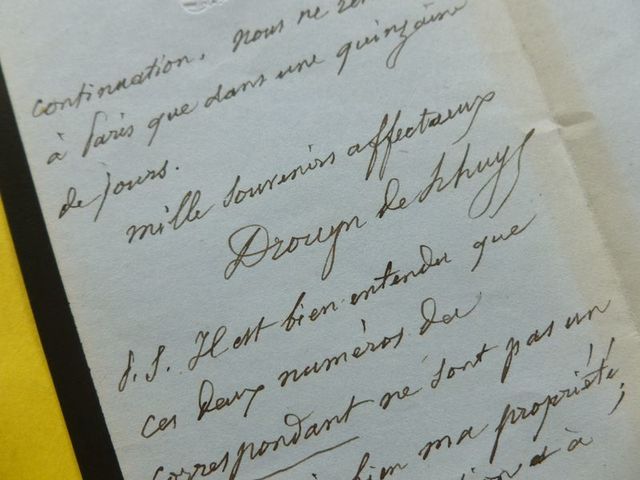 continuation. Nous ne
à Paris que dans une quinzaine
de jours.
mille souvenirs affectueux
Drouyn de Lhuys
P. S. Il est bien entendu que
ces deux numéros du
Correspondant ne sont pas un
bien ma propriété,
à